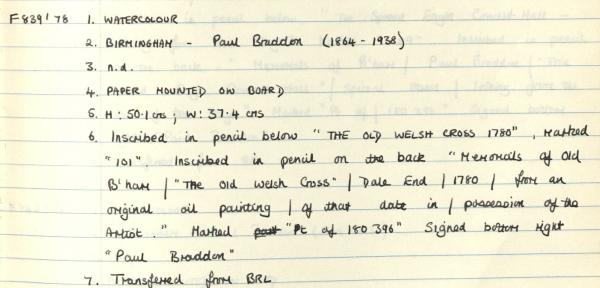 F839'78 1. WATERCOLOUR
2. BIRMINGHAM - Paul Braddon (1864 - 1938)
3. n.d.
4. PAPER MOUNTED ON BOARD
5. H: 50.1 cms ; W: 37.4 cms
6. Inscribed in pencil below "THE OLD WELSH CROSS 1780", marked
"101". Inscribed in pencil on the back "Memorials of Old
B'ham | "The Old Welsh Cross" | Dale End | 1780 | from an
original oil painting | of that date in | possession of the
Artist." Marked "Pt of 180396" Signed bottom right
"Paul Braddon"
7. Transferred from BRL